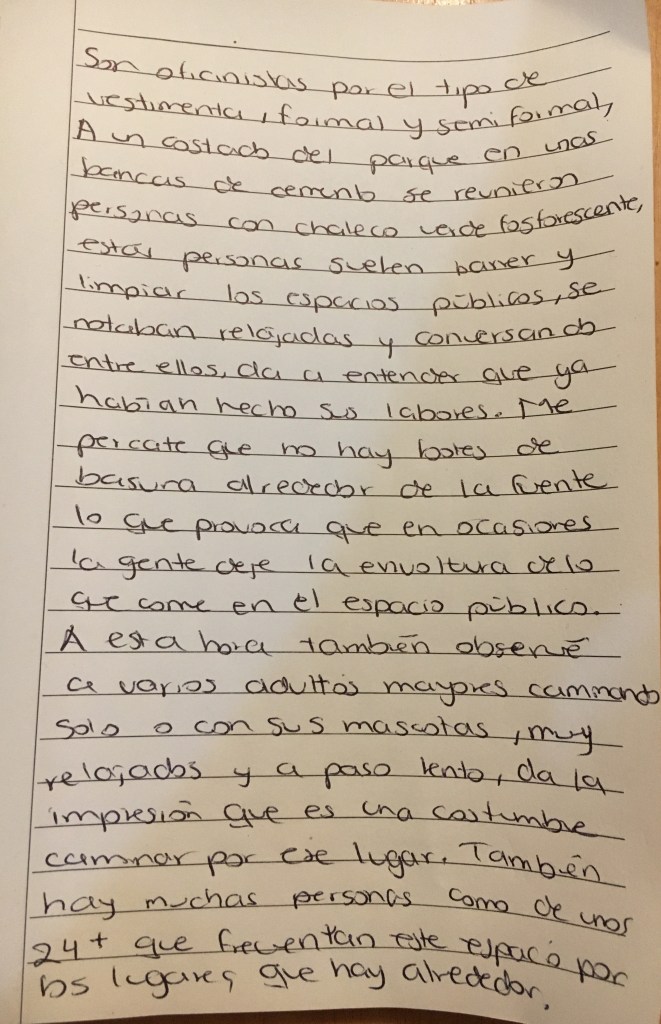 Son oficinistas por el tipo de
vestimenta, formal y semi formal,
A un costado del parque en unas
bancas de cemento se reunieron
personas con chaleco verde fosforescente,
estas personas suelen barrer y
limpiar los espacios públicos, se
notaban relajadas y conversando
entre ellos, da a entender que ya
habían hecho sus labores. Me
percate que no hay botes de
basura alrededor de la fuente
lo que provoca que en ocasiones
la gente deje la envoltura de lo
que come en el espacio público.
A esta hora también observé
a varios adultos mayores caminando
solo o con sus mascotas, muy
relajados y a paso lento, da la
impresión que es una costumbre
caminar por ese lugar. También
hay muchas personas como de unos
24+ que frecuentan este espacio por
los lugares que hay alrededor.